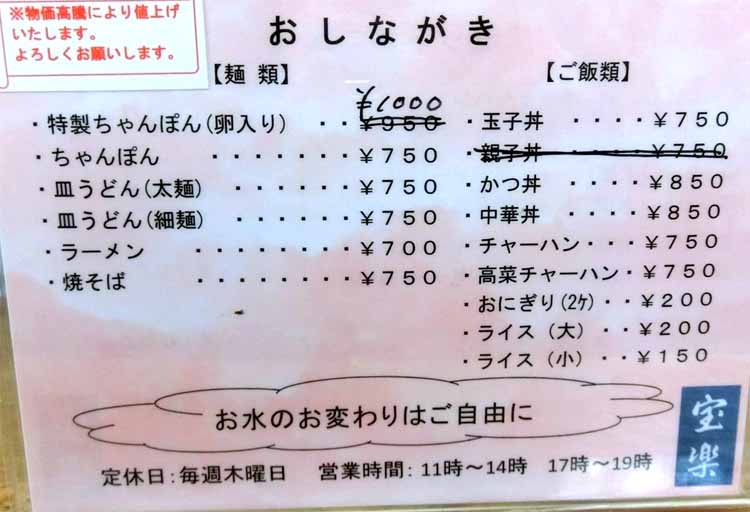 ※物価高騰により値上げ
いたします。
よろしくお願いします。
おしながき
【麺 類】
¥1000
・特製ちゃんぽん(卵入り) ・・¥950
・ちゃんぽん ・・・・・・・¥750
・皿うどん(太麺) ・・・・・¥750
・皿うどん(細麺) ・・・・・¥750
・ラーメン ・・・・・・・・¥700
・焼そば ・・・・・・・・¥750
【ご飯類】
・玉子丼 ・・・・¥750
・親子丼 ・・・・¥750
・かつ丼 ・・・・¥850
・中華丼 ・・・・¥850
・チャーハン・・・¥750
・高菜チャーハン・¥750
・おにぎり(2ケ) ・・¥200
・ライス(大) ・・¥200
・ライス(小) ・・¥150
お水のお変わりはご自由に
定休日:毎週木曜日 営業時間: 11時~14時 17時~19時
宝楽